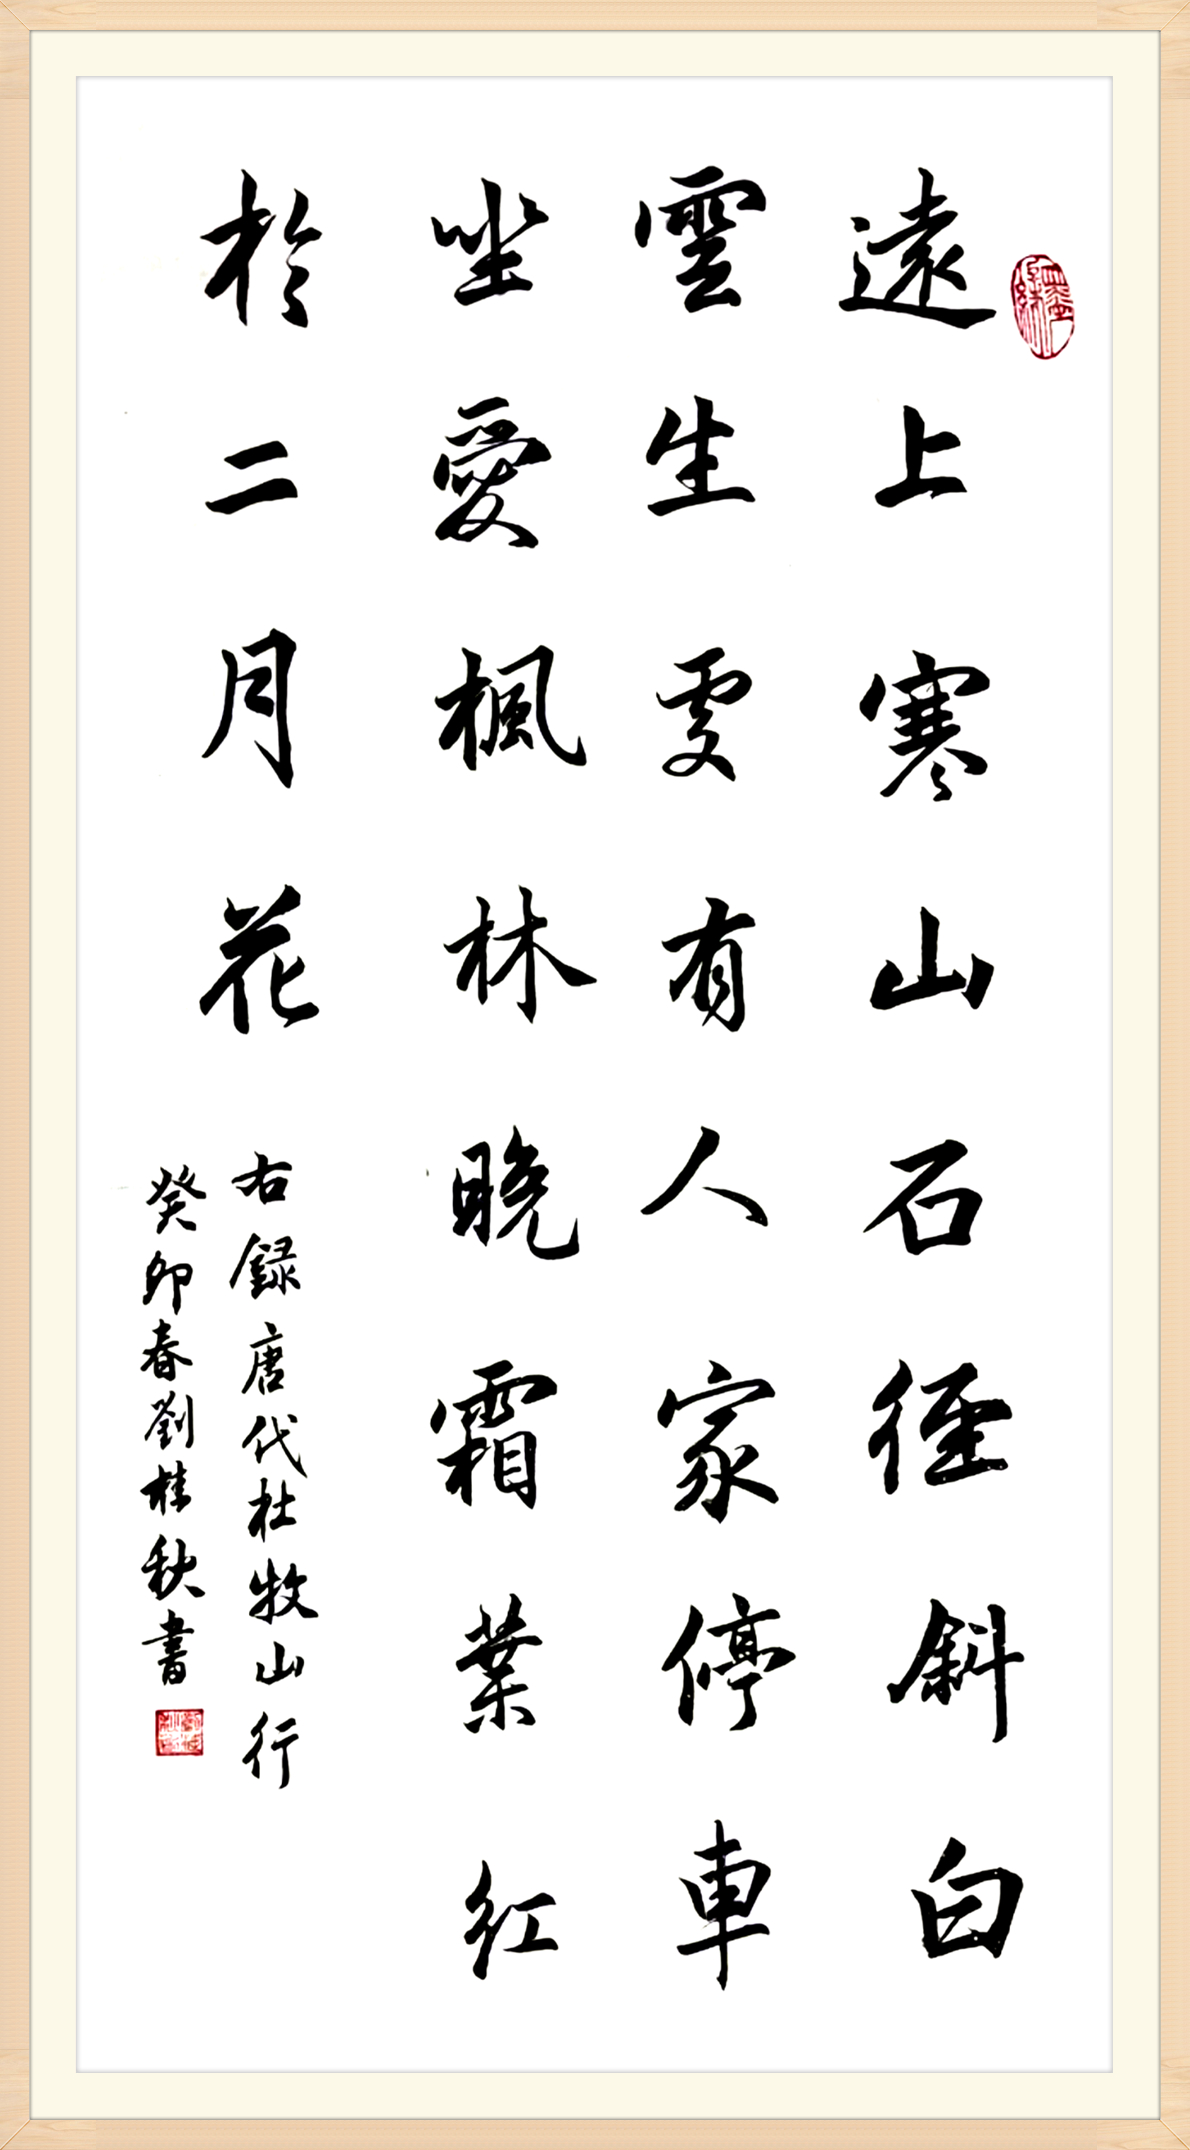 遠上寒山石徑斜白
雲生處有人家停車
坐愛楓林晚霜葉紅
於二月花
右録唐代杜牧山行
癸卯春劉桂秋書